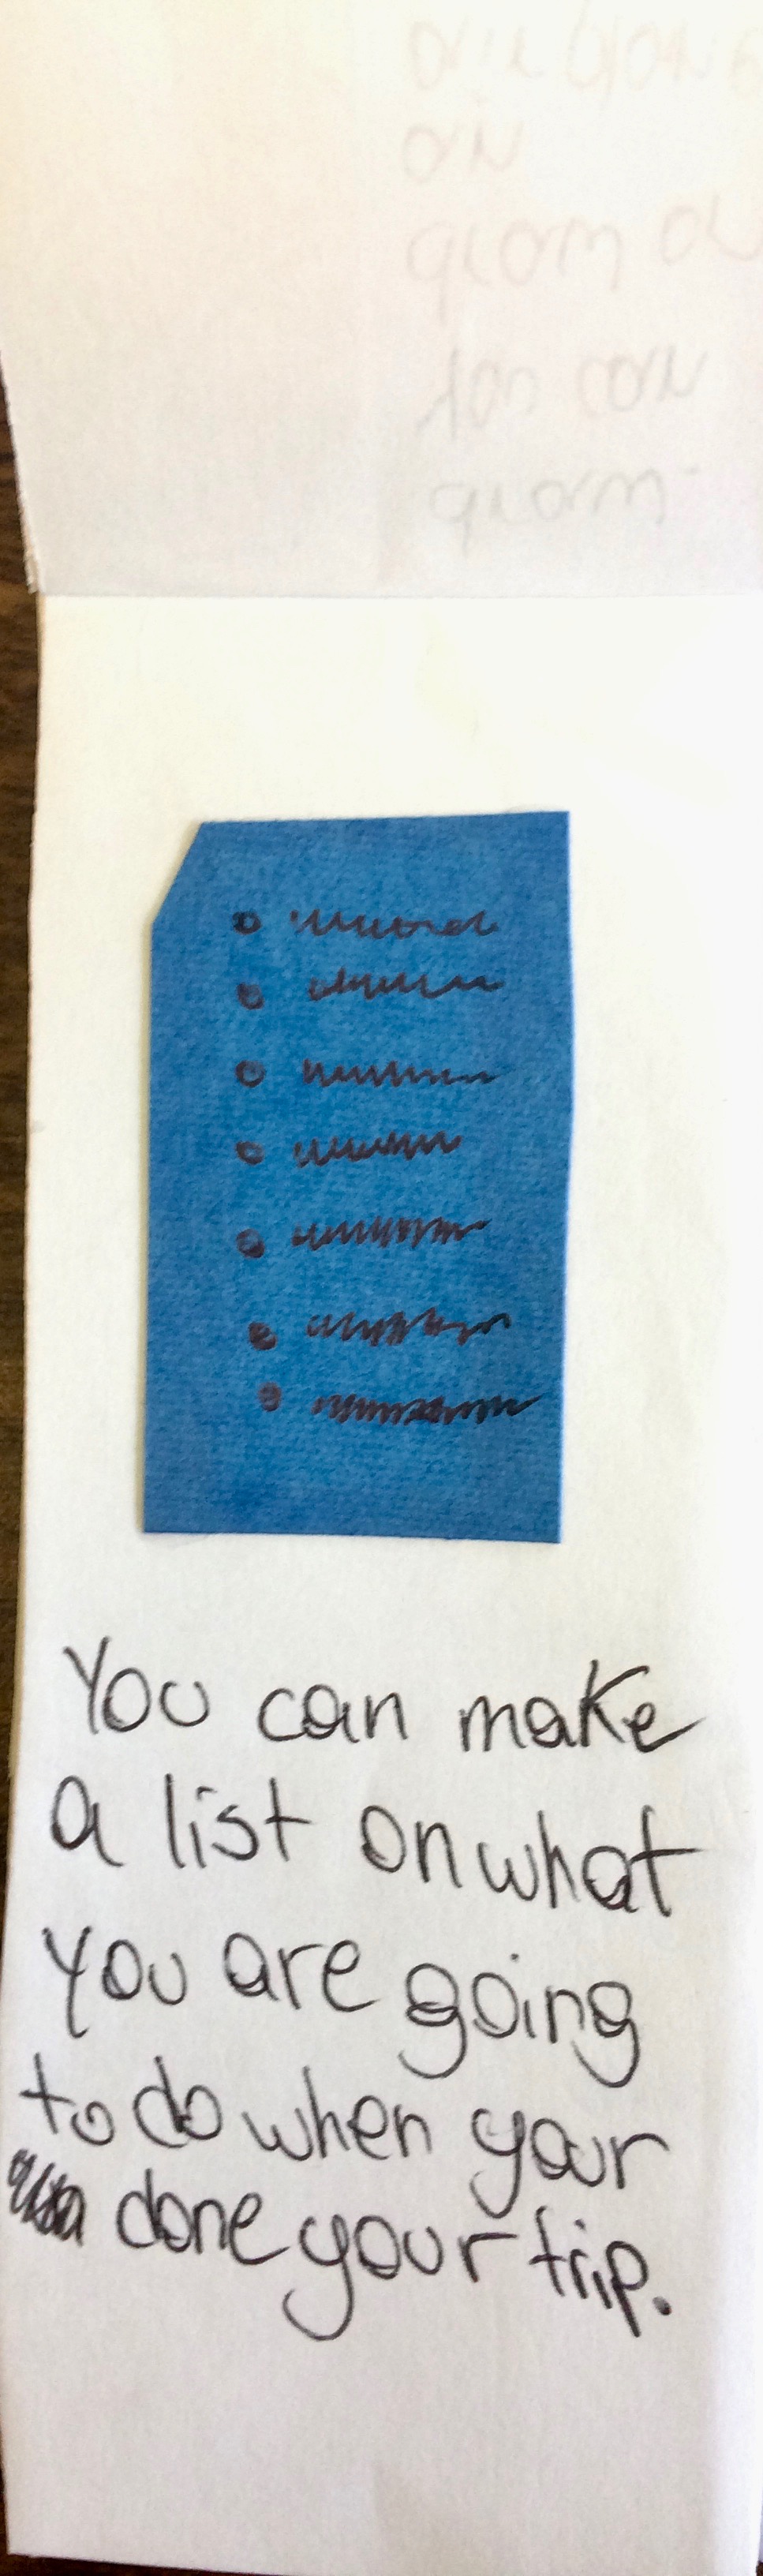 You can make
a list on what
you are going
to do when your
done your trip.